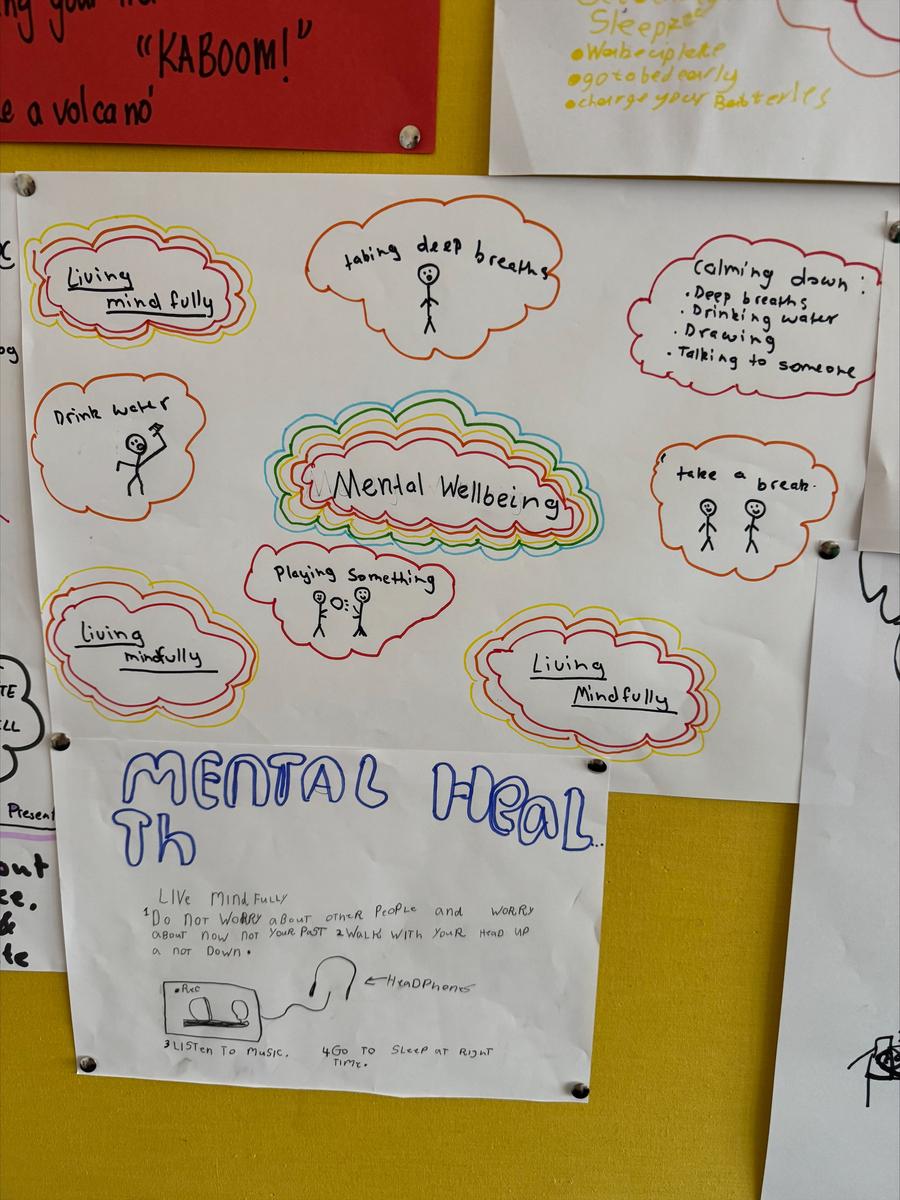 "KABOOM!"
a volcano
Sleepzzz
go to bed early
charge your Batteries
Living
mind fully
taking deep breaths
Calming down:
• Deep breaths
• Drinking water
• Drawing
• Talking to someone
Drink water
Mental Wellbeing
take a break.
Playing something
Living
mindfully
Living
Mindfully
Present
MENTAL HEAL...
Th
LIVe MindFully
1 Do NoT WoRRy aBouT oTHeR PeoPLe and woRRy
aBouT now noT youR PasT 2 WaLK WiTH youR Head uP
a noT Down.
• Rec
← HeaDPhones
3 LISTen To Music. 4 Go To SLeeP aT RighT
Time.